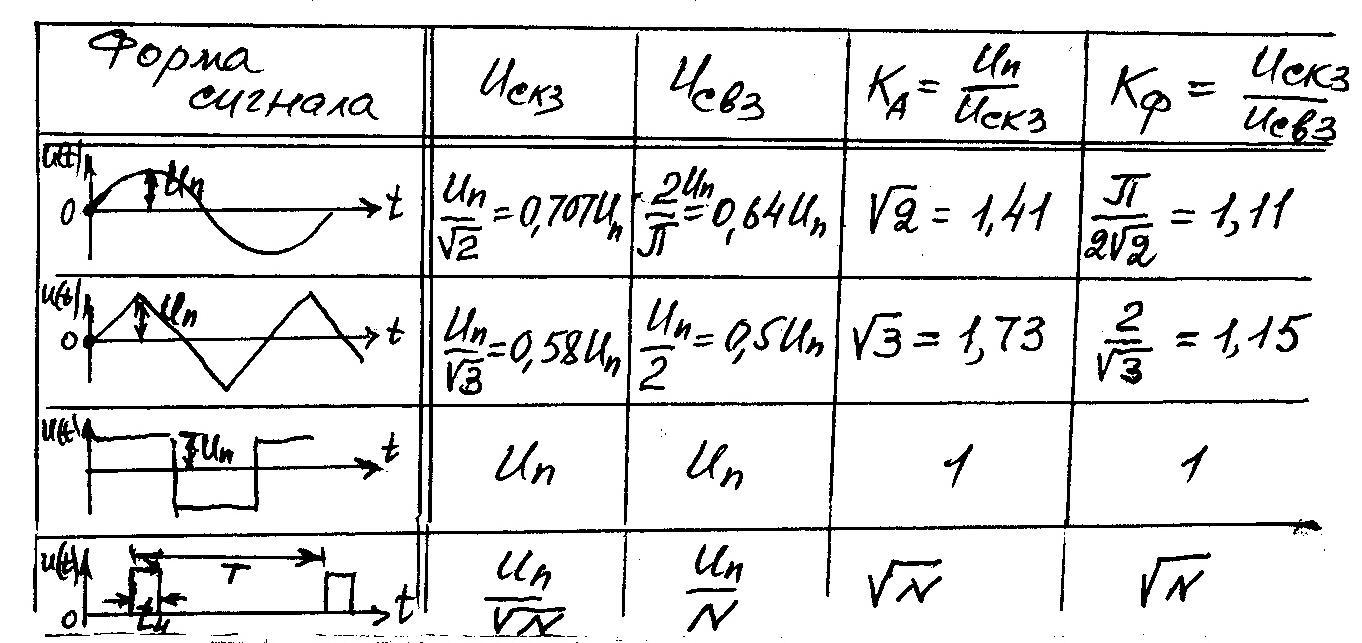 Форма сигнала Uскз Uсвз K_A = Uп/Uскз Kф = Uскз/Uсвз
u(t) Uп 0 t Uп/√2 = 0,707Uп 2/П Uп = 0,64Uп √2 = 1,41 П/2√2 = 1,11
u(t) Uп 0 t Uп/√3 = 0,58Uп Uп/2 = 0,5Uп √3 = 1,73 2/√3 = 1,15
u(t) Uп t Uп Uп 1 1
u(t) T 0 tи t Uп/√N Uп/N √N √N